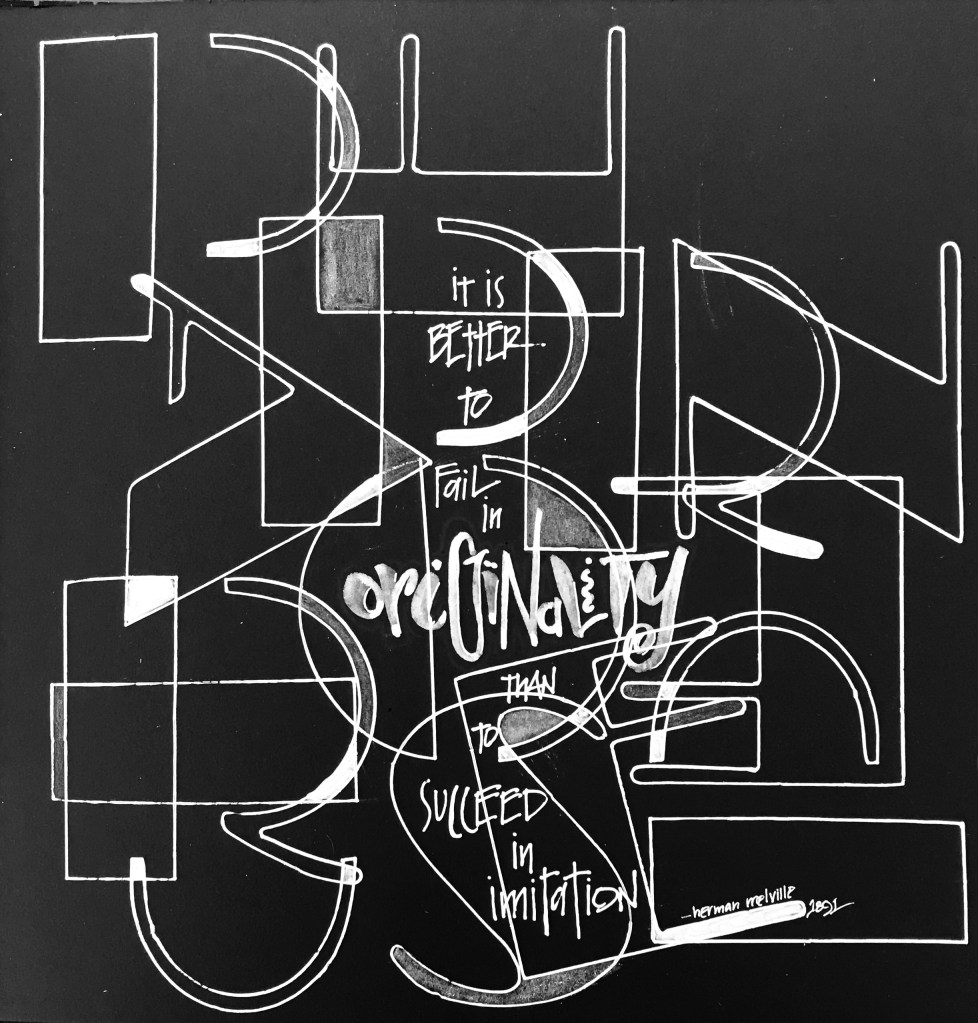 it is
BETTER
to
FaiL
in
oriGiNaLiTy
THAN
to
SUCCEED
in
imitatiON
—herman melville 1891